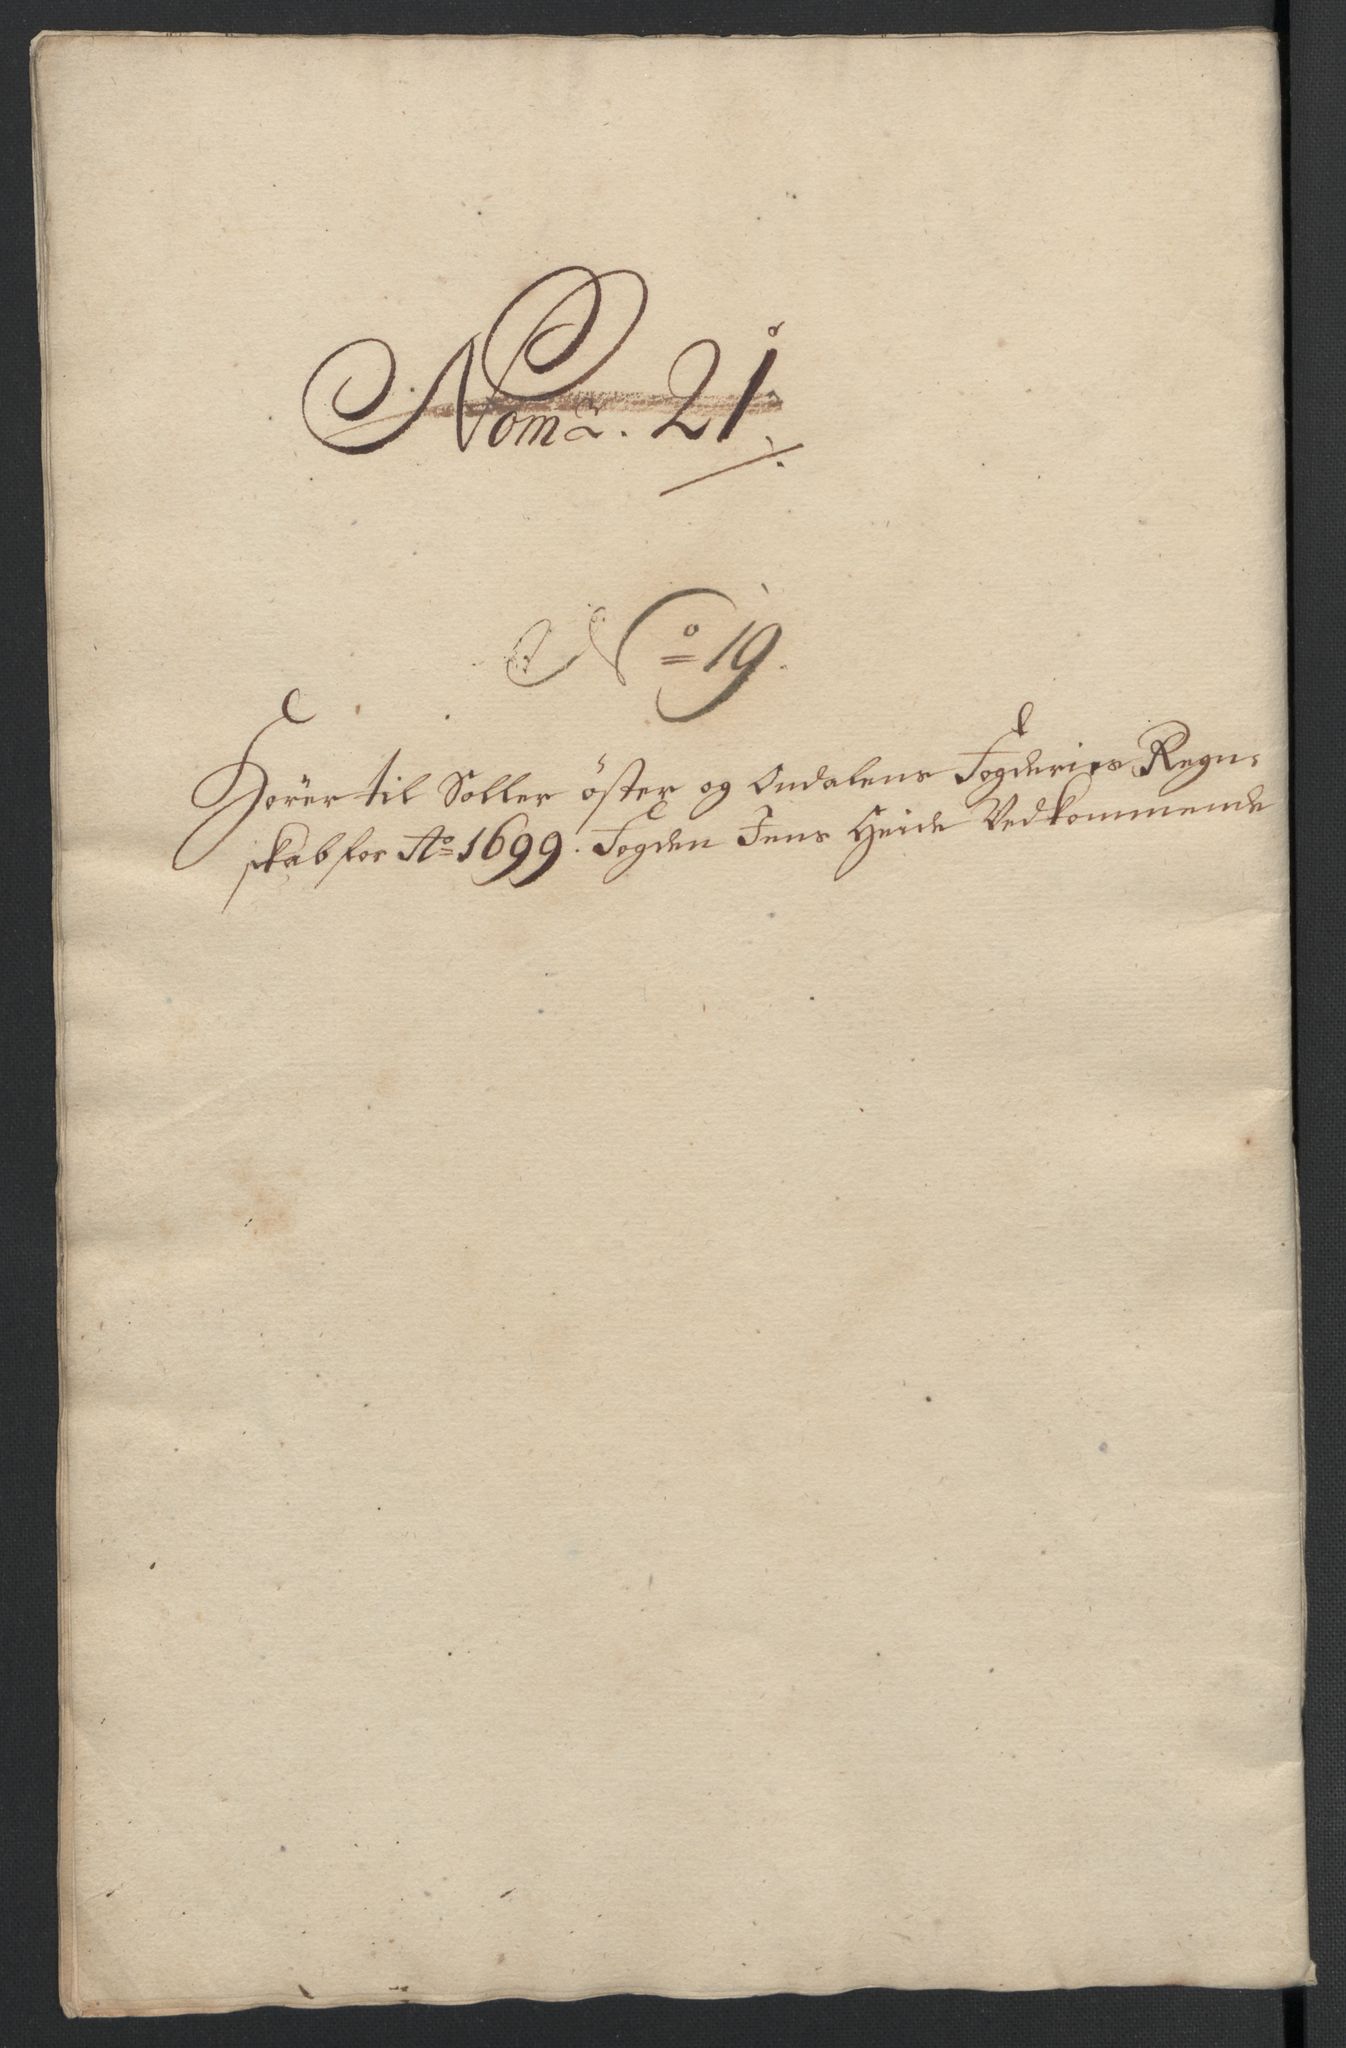 Nom2. 21
No 19.
Hører til Soller öster og Ondalens Fogderies Regn-
skab for Ao 1699. Fogden Jens Heide Vedkommende